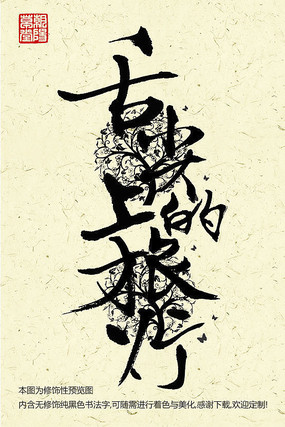 舌尖
上的
旅行
本图为修饰性预览图
内含无修饰纯黑色书法字,可随需进行着色与美化,感谢下载,欢迎定制!